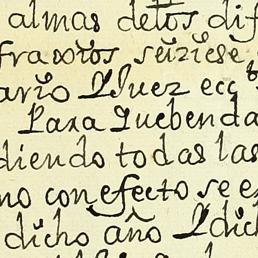 almas delos dif
fraxios se uiziese
ario Y Juez ecc
Para Quebenda
diendo todas las
no con efecto se e
dicho año Y dich